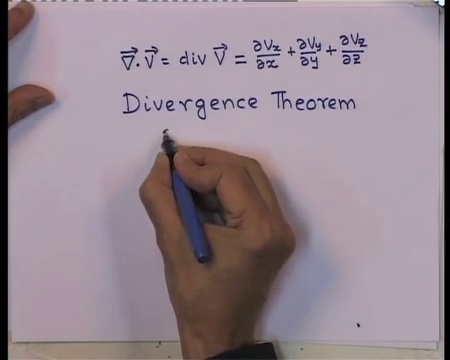 ∇⃗.V⃗ = div V⃗ = ∂Vx/∂x + ∂Vy/∂y + ∂Vz/∂z
Divergence Theorem